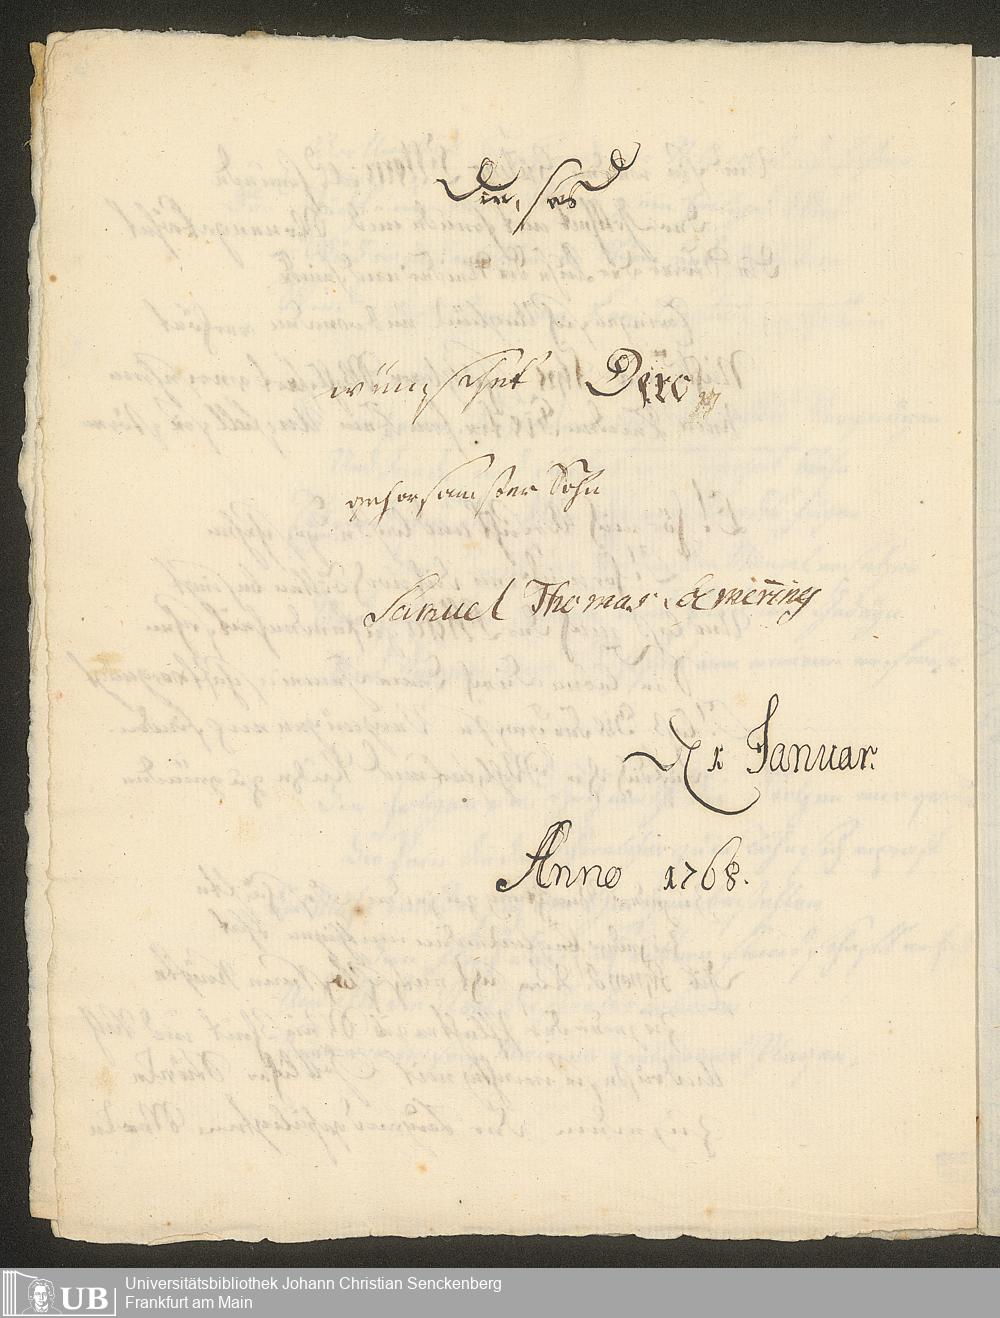 Dieses
wünschet Dero
gehorsamster Sohn
Samuel Thomas Soemering
D. 1 Januar.
Anno 1768.
UB
Universitätsbibliothek Johann Christian Senckenberg
Frankfurt am Main